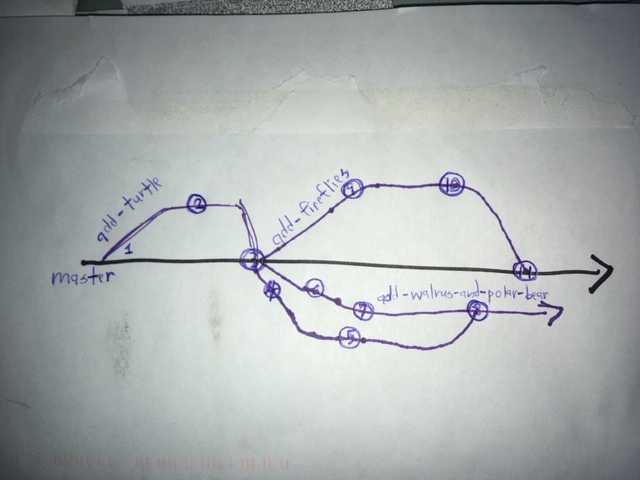 add-turtle
1
2
master
3
add-fireflies
9
10
11
4
6
7
add-walrus-and-polar-bear
5
8